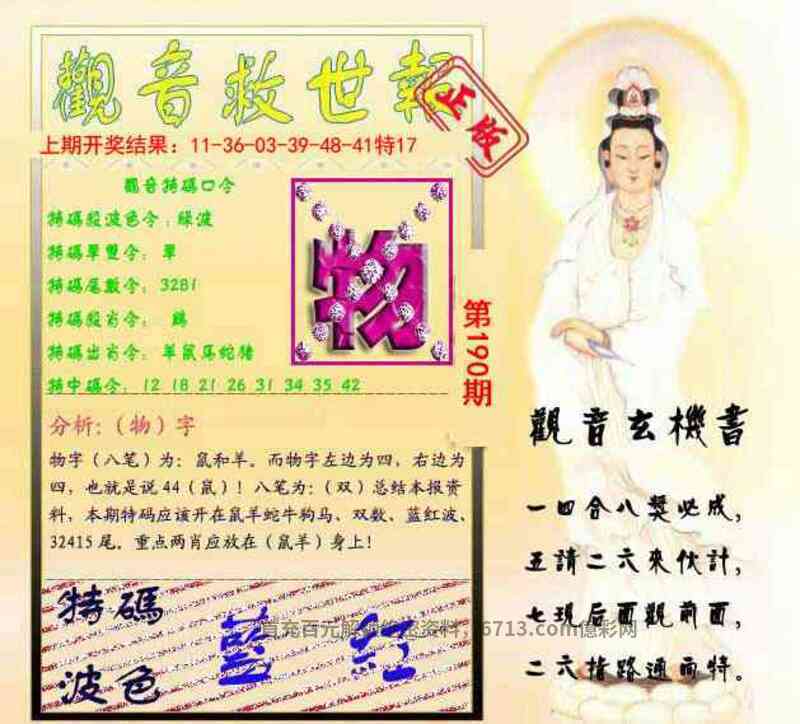 觀音救世報
正版
上期开奖结果：11-36-03-39-48-41特17
觀音特碼口令
特碼殺波色令：綠波
特碼單雙令：單
特碼尾數令：3281
特碼殺肖令：鷄
特碼出肖令：羊鼠馬蛇豬
特中碼令：12 18 21 26 31 34 35 42
物
第190期
分析：（物）字
物字（八笔）为：鼠和羊。而物字左边为四，右边为
四，也就是说44（鼠）！八笔为：（双）总结本报资
料，本期特码应该开在鼠羊蛇牛狗马、双数、蓝红波、
32415尾。重点两肖应放在（鼠羊）身上！
特碼
波色
藍 紅
首充百元解
资料，6713.com億彩网
觀音玄機書
一四合八獎必成，
五請二六來伙計，
七現后面觀前面，
二六指路通両特。